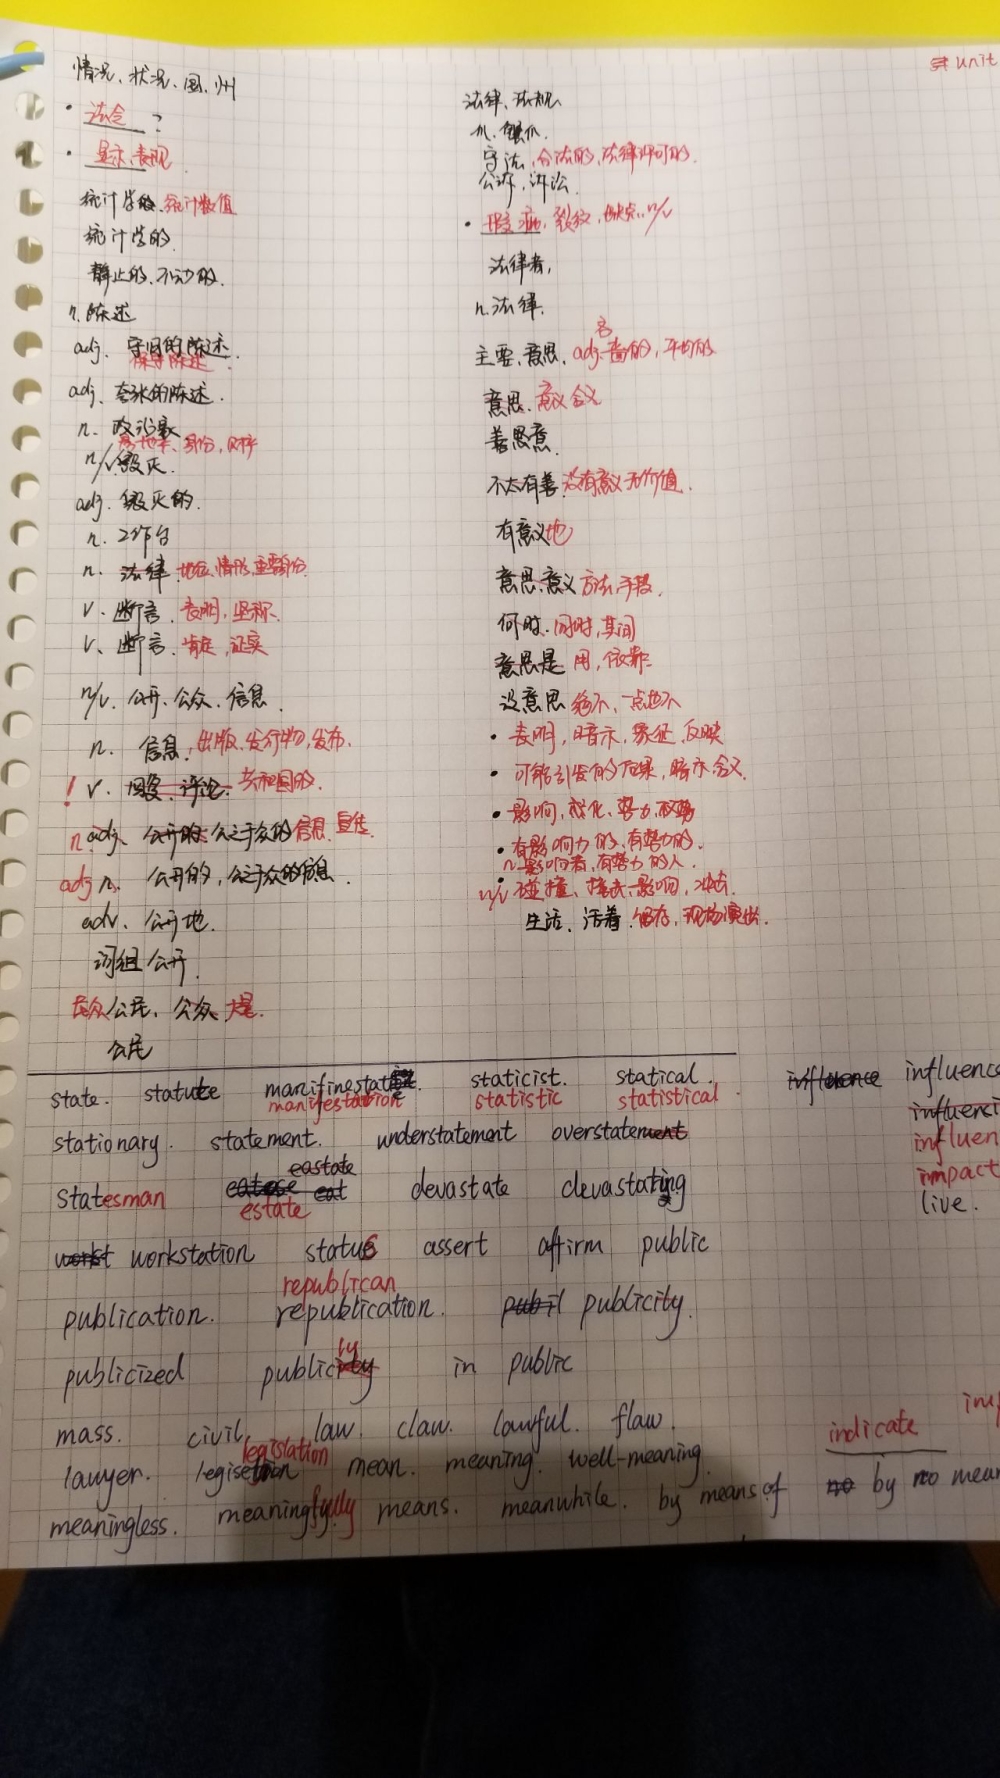 unit
情况、状况、国、州
法令 ?
显示、表现
统计学的、统计数值
统计学的
静止的、不动的.
n. 陈述
adj. 守旧的陈述.
保守陈述
adj. 夸张的陈述.
n. 政治家
n/v. 毁灭.
adj. 毁灭的.
n. 工作台
n. 法律. 地位、情形、重要身份
v. 断言. 表明, 坚称.
v. 断言. 肯定, 证实
n/v. 公开. 公众、信息.
n. 信息, 出版、发行物, 发布.
! v. 回复、评论. 共和国的
n adj. 公开的, 公之于众的信息
adj n. 公开的, 公之于众的信息.
adv. 公开地.
词组 公开.
民众 公民、公众
公民
法律、法规
n. 爪.
守法, 合法的, 法律许可的.
公诉, 诉讼.
瑕疵, 裂纹, 缺点, n/v
法律者,
n. 法律.
名
主要, 意思, adj. 平均的
意思. 意义 含义
善意
不太有善 没有意义 无价值.
有意义地
意思、意义 方法、手段.
何时. 同时, 其间
意思是 用, 依靠
没意思 绝不、一点也不
表明, 暗示, 象征, 反映
可能引发的后果, 暗示, 含义.
影响, 感化, 势力, 权势
有影响力的, 有势力的.
n. 影响者, 有势力的人.
n/v 碰撞、撞击、影响, 冲击.
生活、活着. 留存, 现场演出.
state. statute manifinestat staticist. statical. influence influenc
manifestation statistic statistical. influenci
stationary. statement. understatement overstatement influen
eastate impact
statesman eat devastate devastating live.
estate
workst workstation status assert affirm public
republican
publication. republication. publi publicity.
ly
publicized publicity in public
mass. civil. law. claw. lawful. flaw. indicate imp
legislation
lawyer. legisetion mean. meaning. well-meaning.
meaningless. meaningfully means. meanwhile. by means of no by no mean